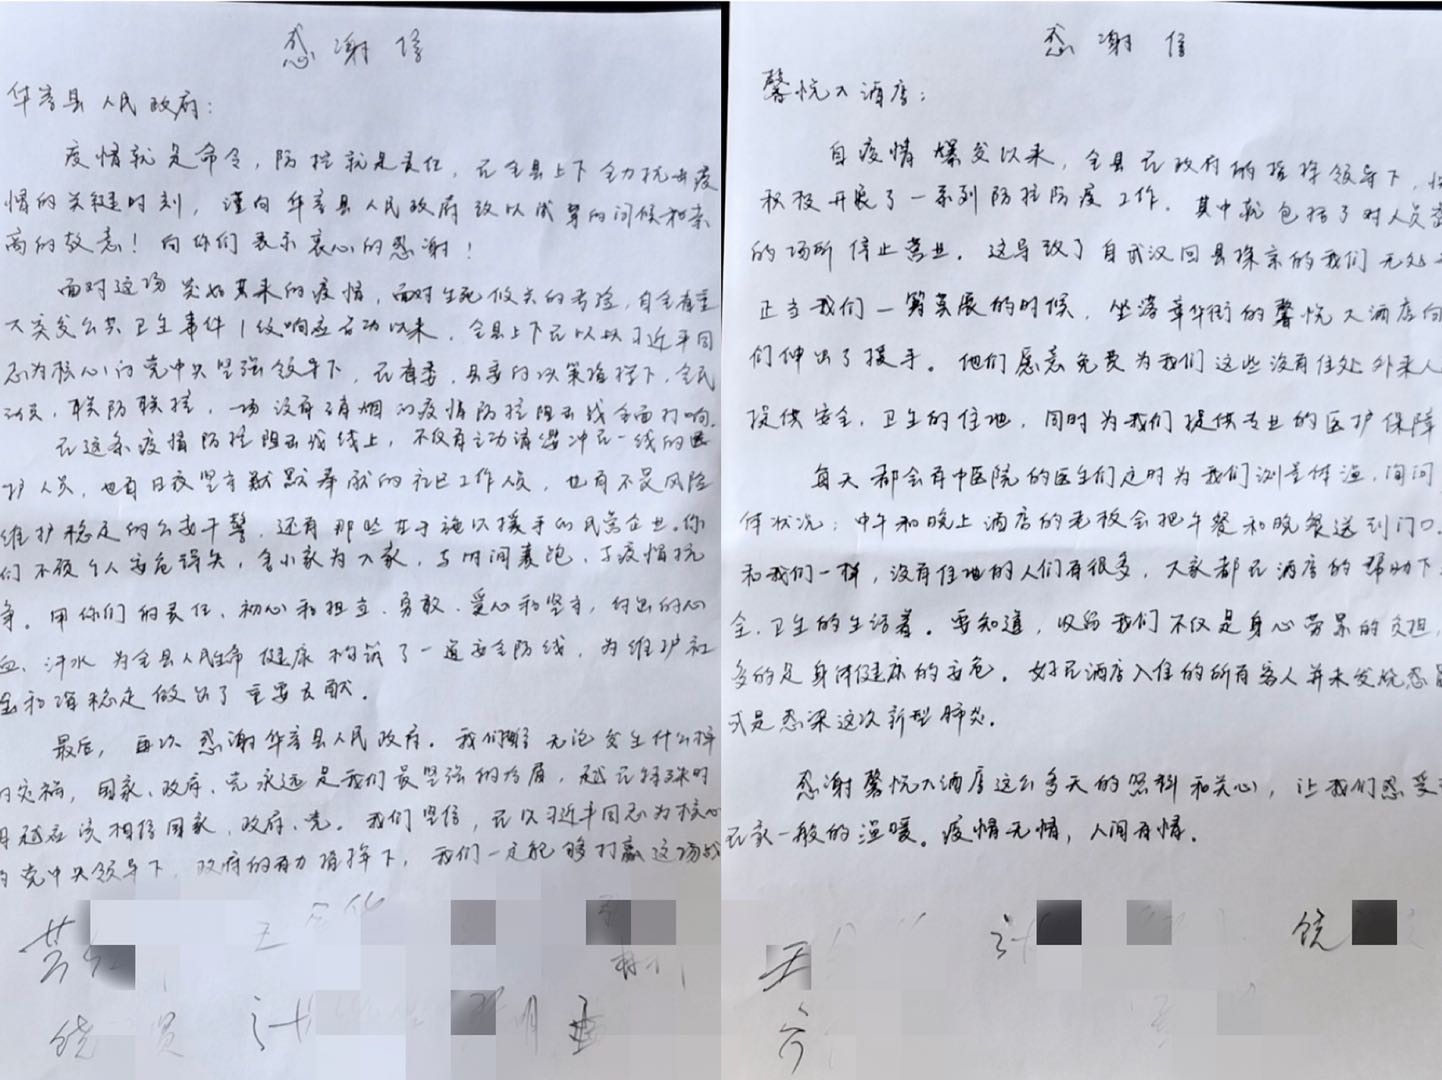 感谢信
华容县人民政府：
疫情就是命令，防控就是责任，在全县上下全力抗击疫
情的关键时刻，谨向华容县人民政府致以诚挚的问候和崇
高的敬意！向你们表示衷心的感谢！
面对这场突如其来的疫情，面对生死攸关的考验，自全省重
大突发公共卫生事件1级响应启动以来，全县上下在以习近平同
志为核心的党中央坚强领导下，在省委、县委的决策指挥下，全民
动员，联防联控，一场没有硝烟的疫情防控阻击战全面打响。
在这条疫情防控阻击战线上，不仅有主动请缨冲在一线的医
护人员，也有日夜坚守默默奉献的社区工作人员，也有不畏风险
维护稳定的公安干警，还有那些甘于施以援手的民营企业。你
们不顾个人安危得失，舍小家为大家，与时间赛跑，与疫情抗
争。用你们的责任、初心和担当、勇敢、爱心和坚守，付出的心
血、汗水为全县人民生命健康构筑了一道安全防线，为维护社
会和谐稳定做出了重要贡献。
最后，再次感谢华容县人民政府。我们无论发生什么样
的灾祸，国家、政府、党永远是我们最坚强的后盾，越在特殊时
期越应该相信国家、政府、党。我们坚信，在以习近平同志为核心
的党中央领导下，政府的有力指挥下，我们一定能够打赢这场战
饶
感谢信
馨悦大酒店：
自疫情爆发以来，全县在政府的指挥领导下，
积极开展了一系列防控防疫工作。其中就包括了对人员
的场所停止营业。这导致了自武汉回县探亲的我们无处
正当我们一筹莫展的时候，坐落章华街的馨悦大酒店向
们伸出了援手。他们愿意免费为我们这些没有住处外来人
提供安全、卫生的住地，同时为我们提供专业的医护保障
每天都会有中医院的医生们定时为我们测量体温，询问
体状况；中午和晚上酒店的老板会把午餐和晚餐送到门口。
和我们一样，没有住地的人们有很多，大家都在酒店的帮助下
全、卫生的生活着。要知道，收留我们不仅是身心劳累的负担，
多的是身体健康的安危。好在酒店入住的所有客人并未发烧感冒
或是感染这次新型肺炎。
感谢馨悦大酒店这么多天的照料和关心，让我们感受
在家一般的温暖。疫情无情，人间有情。
饶